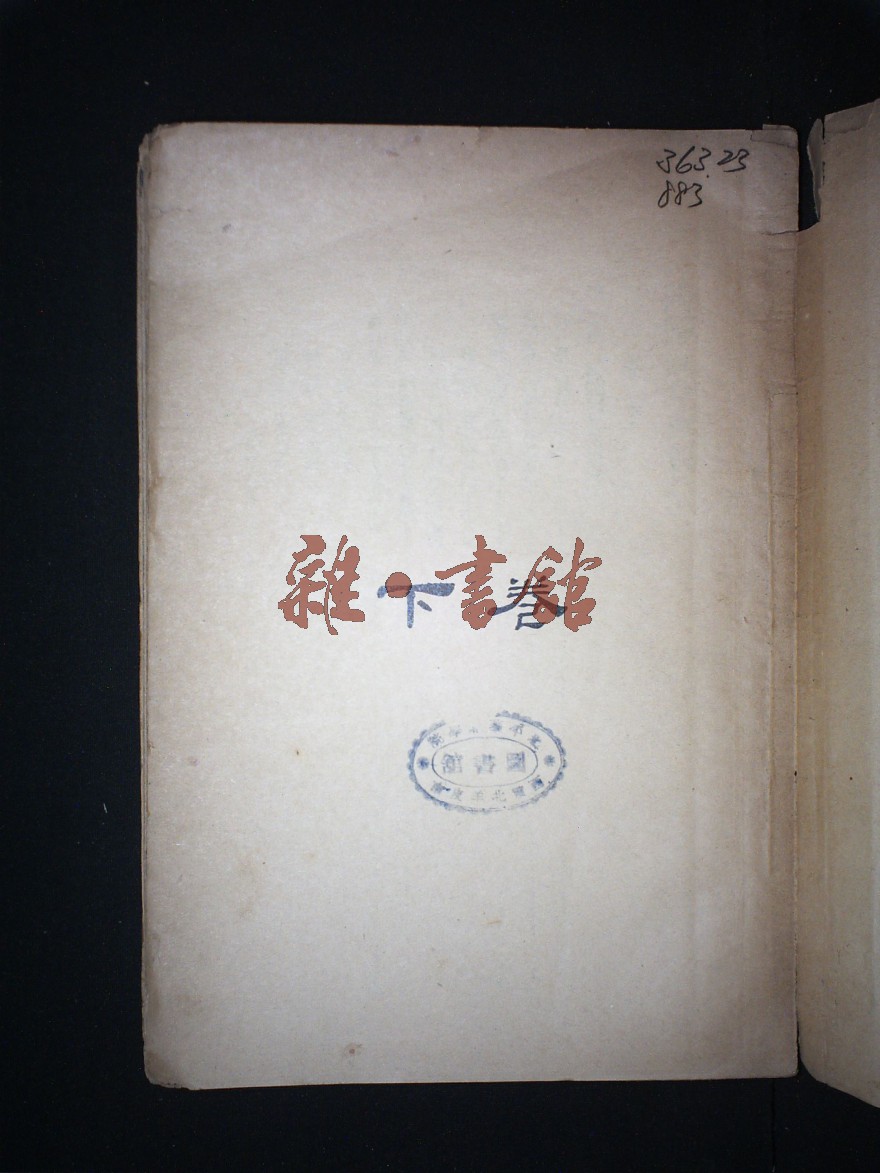 363.23
883
雜·書館
卷下
圖書館